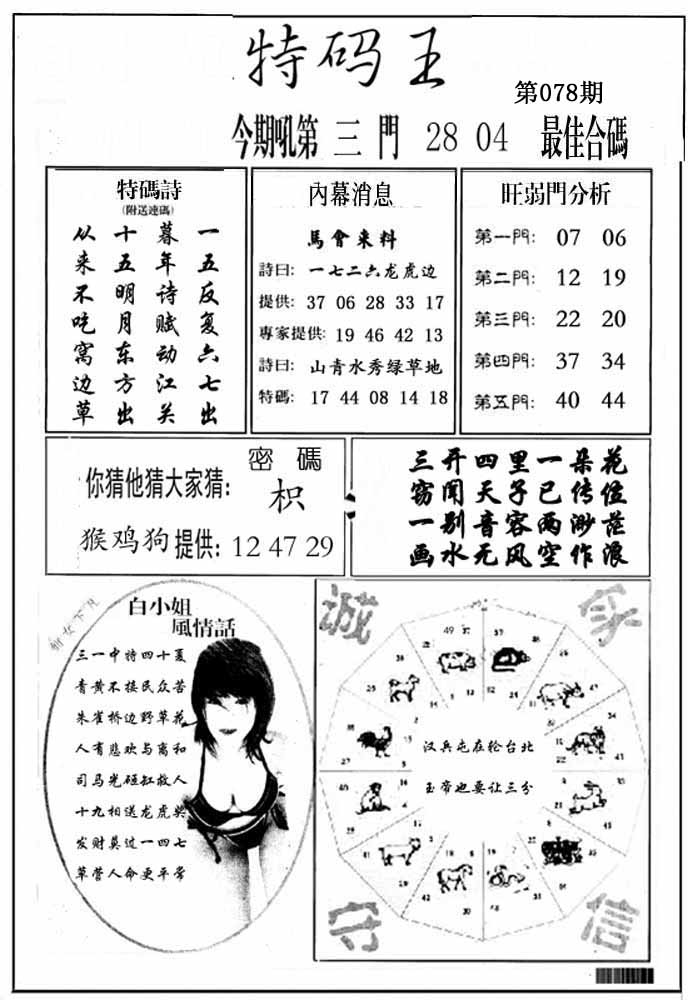 特码王
第078期
今期吼第 三 門 28 04 最佳合碼
特碼詩
(附送連碼)
一五反复六七出
暮年诗赋动江关
十五明月东方出
从来不吃窝边草
內幕消息
馬會來料
詩曰: 一七二六龙虎边
提供: 37 06 28 33 17
專家提供: 19 46 42 13
詩曰: 山青水秀绿草地
特碼: 17 44 08 14 18
旺弱門分析
第一門: 07 06
第二門: 12 19
第三門: 22 20
第四門: 37 34
第五門: 40 44
密碼
你猜他猜大家猜: 枳
猴鸡狗提供: 12 47 29
三开四里一朵花
窃闻天子已传位
一别音容两渺茫
画水无风空作浪
白小姐
風情話
三一中特四十夏
青黄不接民众苦
朱雀桥边野草花
人有悲欢与离和
司马光砸缸救人
十九相送龙虎奖
发财莫过一四七
草营人命更平常
誠
家
守
信
汉兵屯在轮台北
玉帝也要让三分